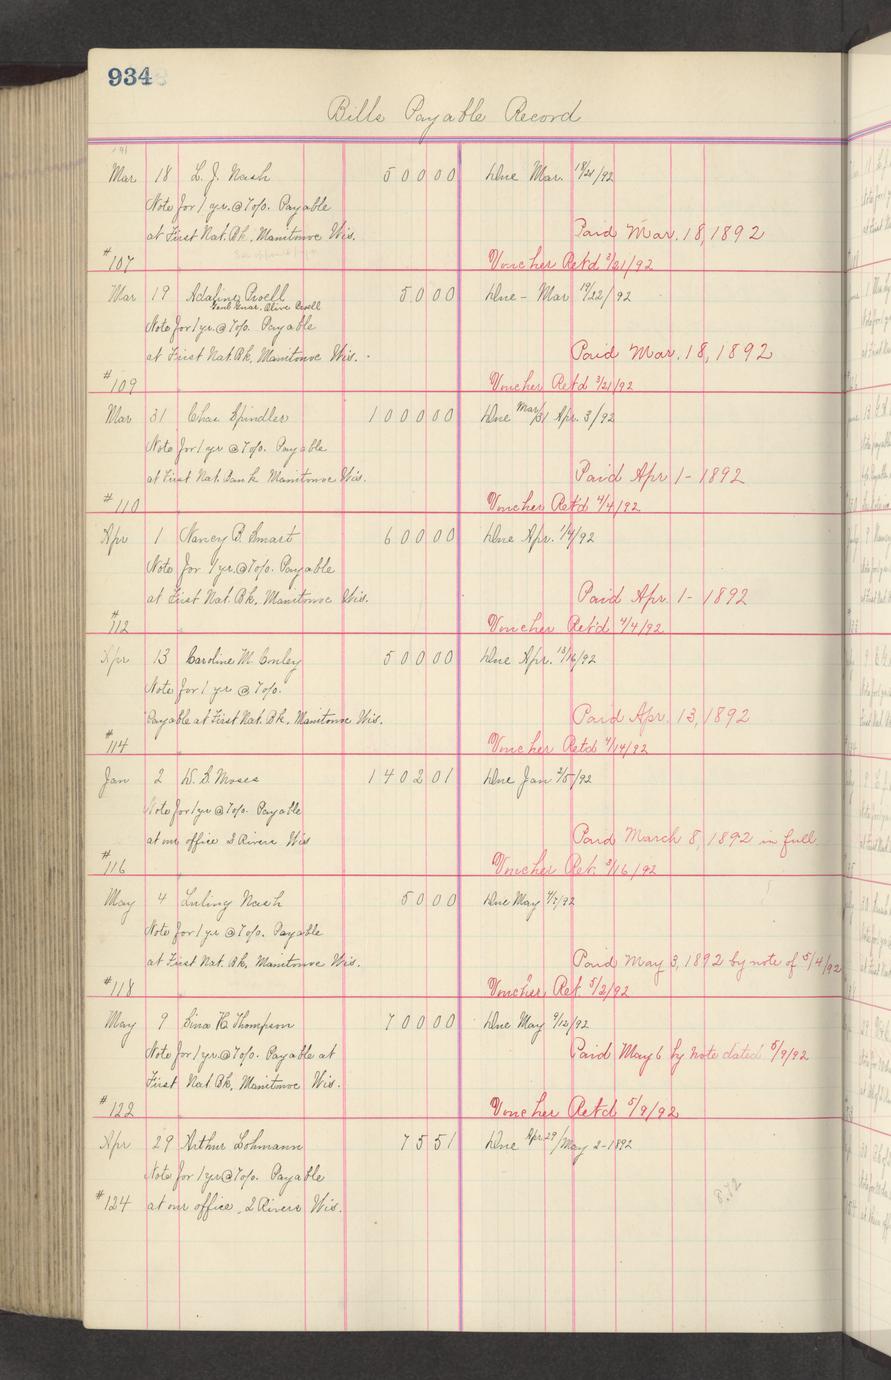 934
Bills Payable Record
Mar 18 L. J. Nash 50000 Due Mar. 18/21/92
Note for 1 yr. @ 7%. Payable
at First Nat. Bk, Manitowoc Wis. Paid Mar. 18, 1892
#107 Voucher Ret'd 3/21/92
Mar 19 Adaline Powell 5000 Due - Mar 19/22/92
Olive Powell
Note for 1 yr. @ 7%. Payable
at First Nat. Bk, Manitowoc Wis. Paid Mar. 18, 1892
#109 Voucher Ret'd 3/21/92
Mar 31 Chas Spindler 100000 Due Mar/31 Apr. 3/92
Note for 1 yr @ 7%. Payable
at First Nat. Bank Manitowoc Wis. Paid Apr 1 - 1892
#110 Voucher Ret'd 4/4/92
Apr 1 Nancy B. Smart 60000 Due Apr. 1/4/92
Note for 1 yr. @ 7%. Payable
at First Nat. Bk, Manitowoc Wis. Paid Apr. 1 - 1892
#112 Voucher Ret'd 4/4/92
Apr 13 Caroline M. Conley 50000 Due Apr. 13/16/92
Note for 1 yr @ 7%.
Payable at First Nat. Bk, Manitowoc Wis. Paid Apr. 13, 1892
#114 Voucher Ret'd 4/14/92
Jan 2 D. S. Moses 140201 Due Jan 2/5/92
Note for 1 yr @ 7%. Payable
at our office 2 Rivers Wis Paid March 8, 1892 in full
#116 Voucher Ret. 3/16/92
May 4 Luling Nash 5000 Due May 4/7/92
Note for 1 yr @ 7%. Payable
at First Nat. Bk, Manitowoc Wis. Paid May 3, 1892 by note of 5/4/92
#118 Voucher Ret. 5/2/92
May 9 Sina H Thompson 70000 Due May 9/12/92
Note for 1 yr. @ 7%. Payable at Paid May 6 by note dated 5/9/92
First Nat Bk, Manitowoc Wis.
#122 Voucher Ret'd 5/9/92
Apr 29 Arthur Lohmann 7551 Due Apr 29/May 2 - 1892
Note for 1 yr @ 7%. Payable
#124 at our office, 2 Rivers Wis.